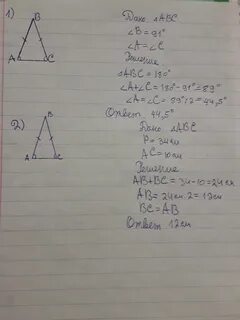 1)
B
A C
Дано: △ABC
∠B = 91°
∠A = ∠C
Решение
△ABC = 180°
∠A + ∠C = 180° - 91° = 89°
∠A = ∠C = 89° : 2 = 44,5°
Ответ 44,5°
2)
B
A C
Дано △ABC
P = 34 см
AC = 10 см
Решение
AB + BC = 34 - 10 = 24 см
AB = 24 см : 2 = 12 см
BC = AB
Ответ 12 см